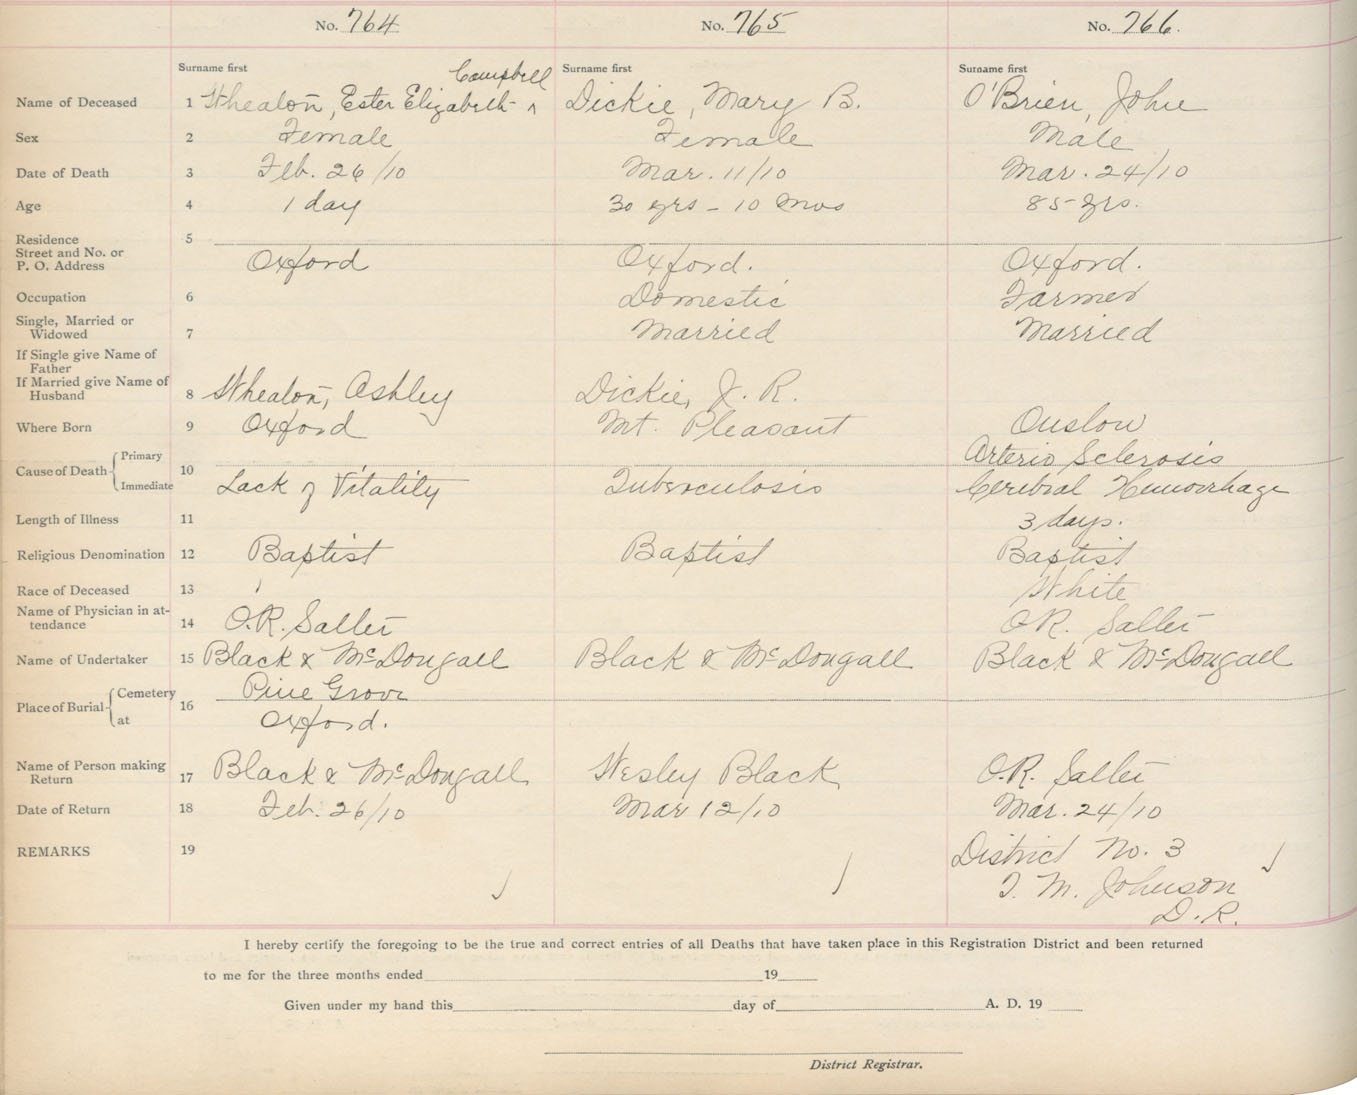 No. 764 No. 765 No. 766.
Surname first Surname first Surname first
Campbell
Name of Deceased 1 Whealon, Ester Elizabeth ^ Dickie, Mary B. O'Brien, John
Sex 2 Female Female Male
Date of Death 3 Feb. 26/10 Mar. 11/10 Mar. 24/10
Age 4 1 day 30 yrs - 10 mos 85 yrs.
Residence 5
Street and No. or
P. O. Address Oxford Oxford. Oxford.
Occupation 6 Domestic Farmer
Single, Married or
Widowed 7 Married Married
If Single give Name of
Father
If Married give Name of
Husband 8 Whealon, Ashley Dickie, J. R.
Where Born 9 Oxford Mt. Pleasant Onslow
Cause of Death Primary 10 Arterio Sclerosis
Immediate Lack of Vitality Tuberculosis Cerebral Hemorrhage
Length of Illness 11 3 days.
Religious Denomination 12 Baptist Baptist Baptist
Race of Deceased 13 White
Name of Physician in at-
tendance 14 O.R. Salter O.R. Salter
Name of Undertaker 15 Black & McDougall Black & McDougall Black & McDougall
Place of Burial Cemetery 16 Pine Grove
at Oxford.
Name of Person making
Return 17 Black & McDougall Wesley Black O.R. Salter
Date of Return 18 Feb. 26/10 Mar 12/10 Mar. 24/10
REMARKS 19 District No. 3
T. M. Johnson
D.R.
I hereby certify the foregoing to be the true and correct entries of all Deaths that have taken place in this Registration District and been returned
to me for the three months ended 19
Given under my hand this day of A. D. 19
District Registrar.